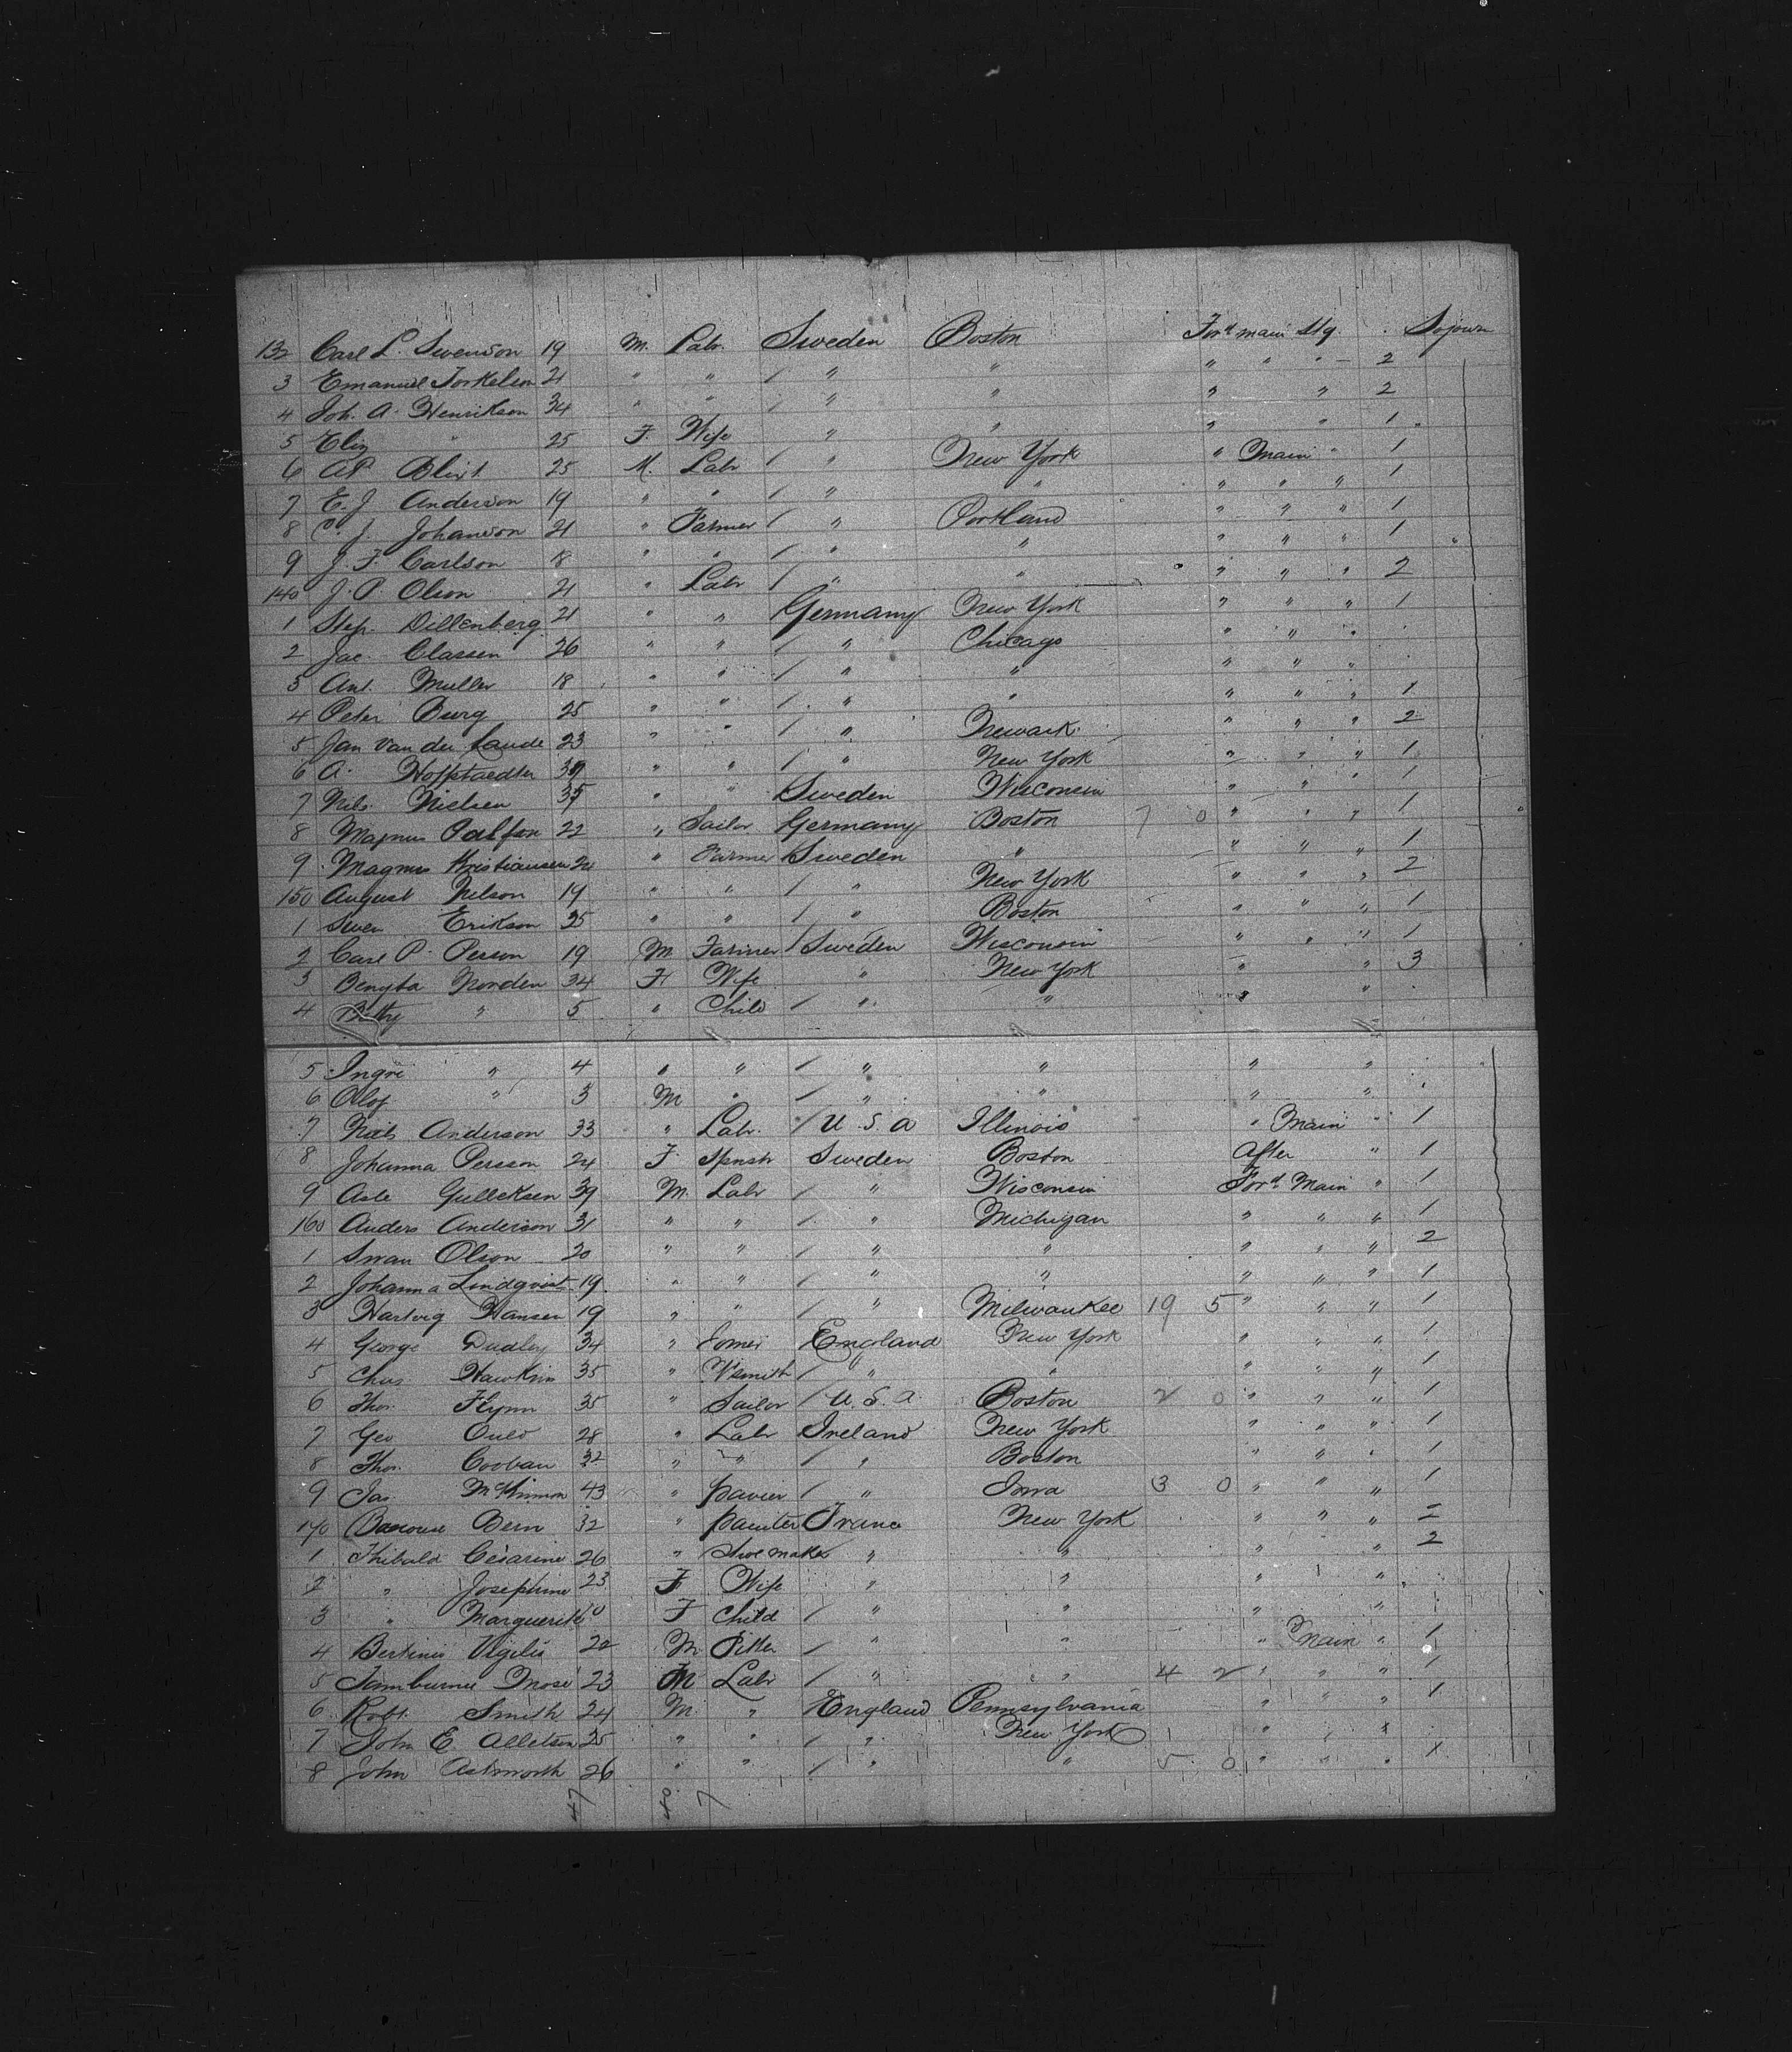 132 Carl L. Swenson 19 M. Labr. Sweden Boston For'd main Stg. Sojourn
3 Emanuel Torkelson 21 " " / " " " " " 2
4 Joh. A. Henrikson 34 " " / " " " " 2
5 Eliz " 25 F. Wife " " " " 1
6 A.P. Blixt 25 M. Labr / " New York " Main " 1
7 E. J. Anderson 19 " " / " " " " " 1
8 C. J. Johanson 21 " Farmer / " Portland " " " 1
9 J. F. Carlson 18 " " / " " " " " 1
140 J. P. Olson 21 " Labr / " " " " " 2
1 Step. Dillenberg 21 " " Germany New York " " " 1
2 Jac. Classen 26 " " / " Chicago " " "
3 Ant. Muller 18 " " / " " " " "
4 Peter Burg 25 " " / " " " " " 1
5 Jan van der 23 " " / " Newark " " " 2
6 A. Hoffstaedter " " / " New York " " " 1
7 Nils Nielsen " " Sweden Wisconsin " " " 1
8 Magnus 22 " Sailor Germany Boston 7 0 " " " 1
9 Magnus Kristiansen " Farmer Sweden " " " " 1
150 August Nelson 19 " " / " New York " " " 2
1 Swen Erikson 25 " " / " Boston " " " 1
2 Carl P. Person 19 M Farmer / Sweden Wisconsin " " " 1
3 Bengta Norden 34 F Wife " New York " " 3
4 Betty " 5 " Child / " " " "
5 Ingri " 4 " " / " " " "
6 Olof " 3 M " / " " " "
7 Anderson 33 " Labr. / U.S.A Illinois " Main " 1
8 Johanna Persson 24 F. Spnstr Sweden Boston After " 1
9 Asle Gulleksen 39 M. Labr / " Wisconsin For'd Main " 1
160 Anders Anderson 31 " " / " Michigan " " " 1
1 Swan Olson 20 " " / " " " " " 2
2 Johanna Lindqvist 19 " " / " " " " " 1
3 Hartvig Hansen 19 " " / " Milwaukee 19 5 " " " 1
4 George Dudley 34 " England New York " " " 1
5 Chas Hawkins 35 " / " " " " " 1
6 Thos. Flynn 35 " Sailor / U.S.A. Boston 2 0 " " " 1
7 Geo 28 " Labr Ireland New York " " " 1
8 Thos. 32 " " / " Boston " " " 1
9 Jas. McKinnon 43 " pavier / " Iowa 3 0 " " " 1
170 Bern 32 " painter France New York " " "
1 Thibald Césarine 26 " Shoemaker " " " " 2
2 " Josephine 23 F Wife " " " "
3 " Marguerite F Child / " " " "
4 Vigilis M / " " " Main " 1
5 23 M Labr / " " 4 2 " " " 1
6 Robt. Smith 24 M " England Pennsylvania " " " 1
7 John E. Alletson 25 " " / " New York " "
8 John Ashworth 26 " " / " " 5 0 " " " 1